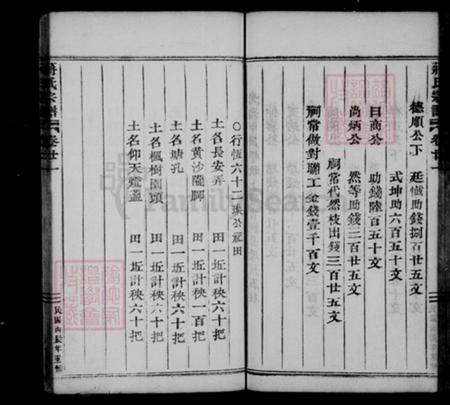 德順公下
廷幟助錢捌百廿五文
式坤助六百五十文
曰商公
助錢陸百五十文
尚炳公
然等助錢三百廿五文
祠常代然枝出錢三百廿五文
祠常做對聯工金錢壹千百文
○行恆六十二琜公祀田
土名長安弄 田一坵計秧六十把
土名黃沙隴脚 田一坵計秧一百把
土名塘孔 田一坵計秧六十把
土名楓樹園頭 田一坵計秧六十把
土名仰天燈盞 田一坵計秧六十把
蔣氏宗譜
卷廿
民國丙辰年重修